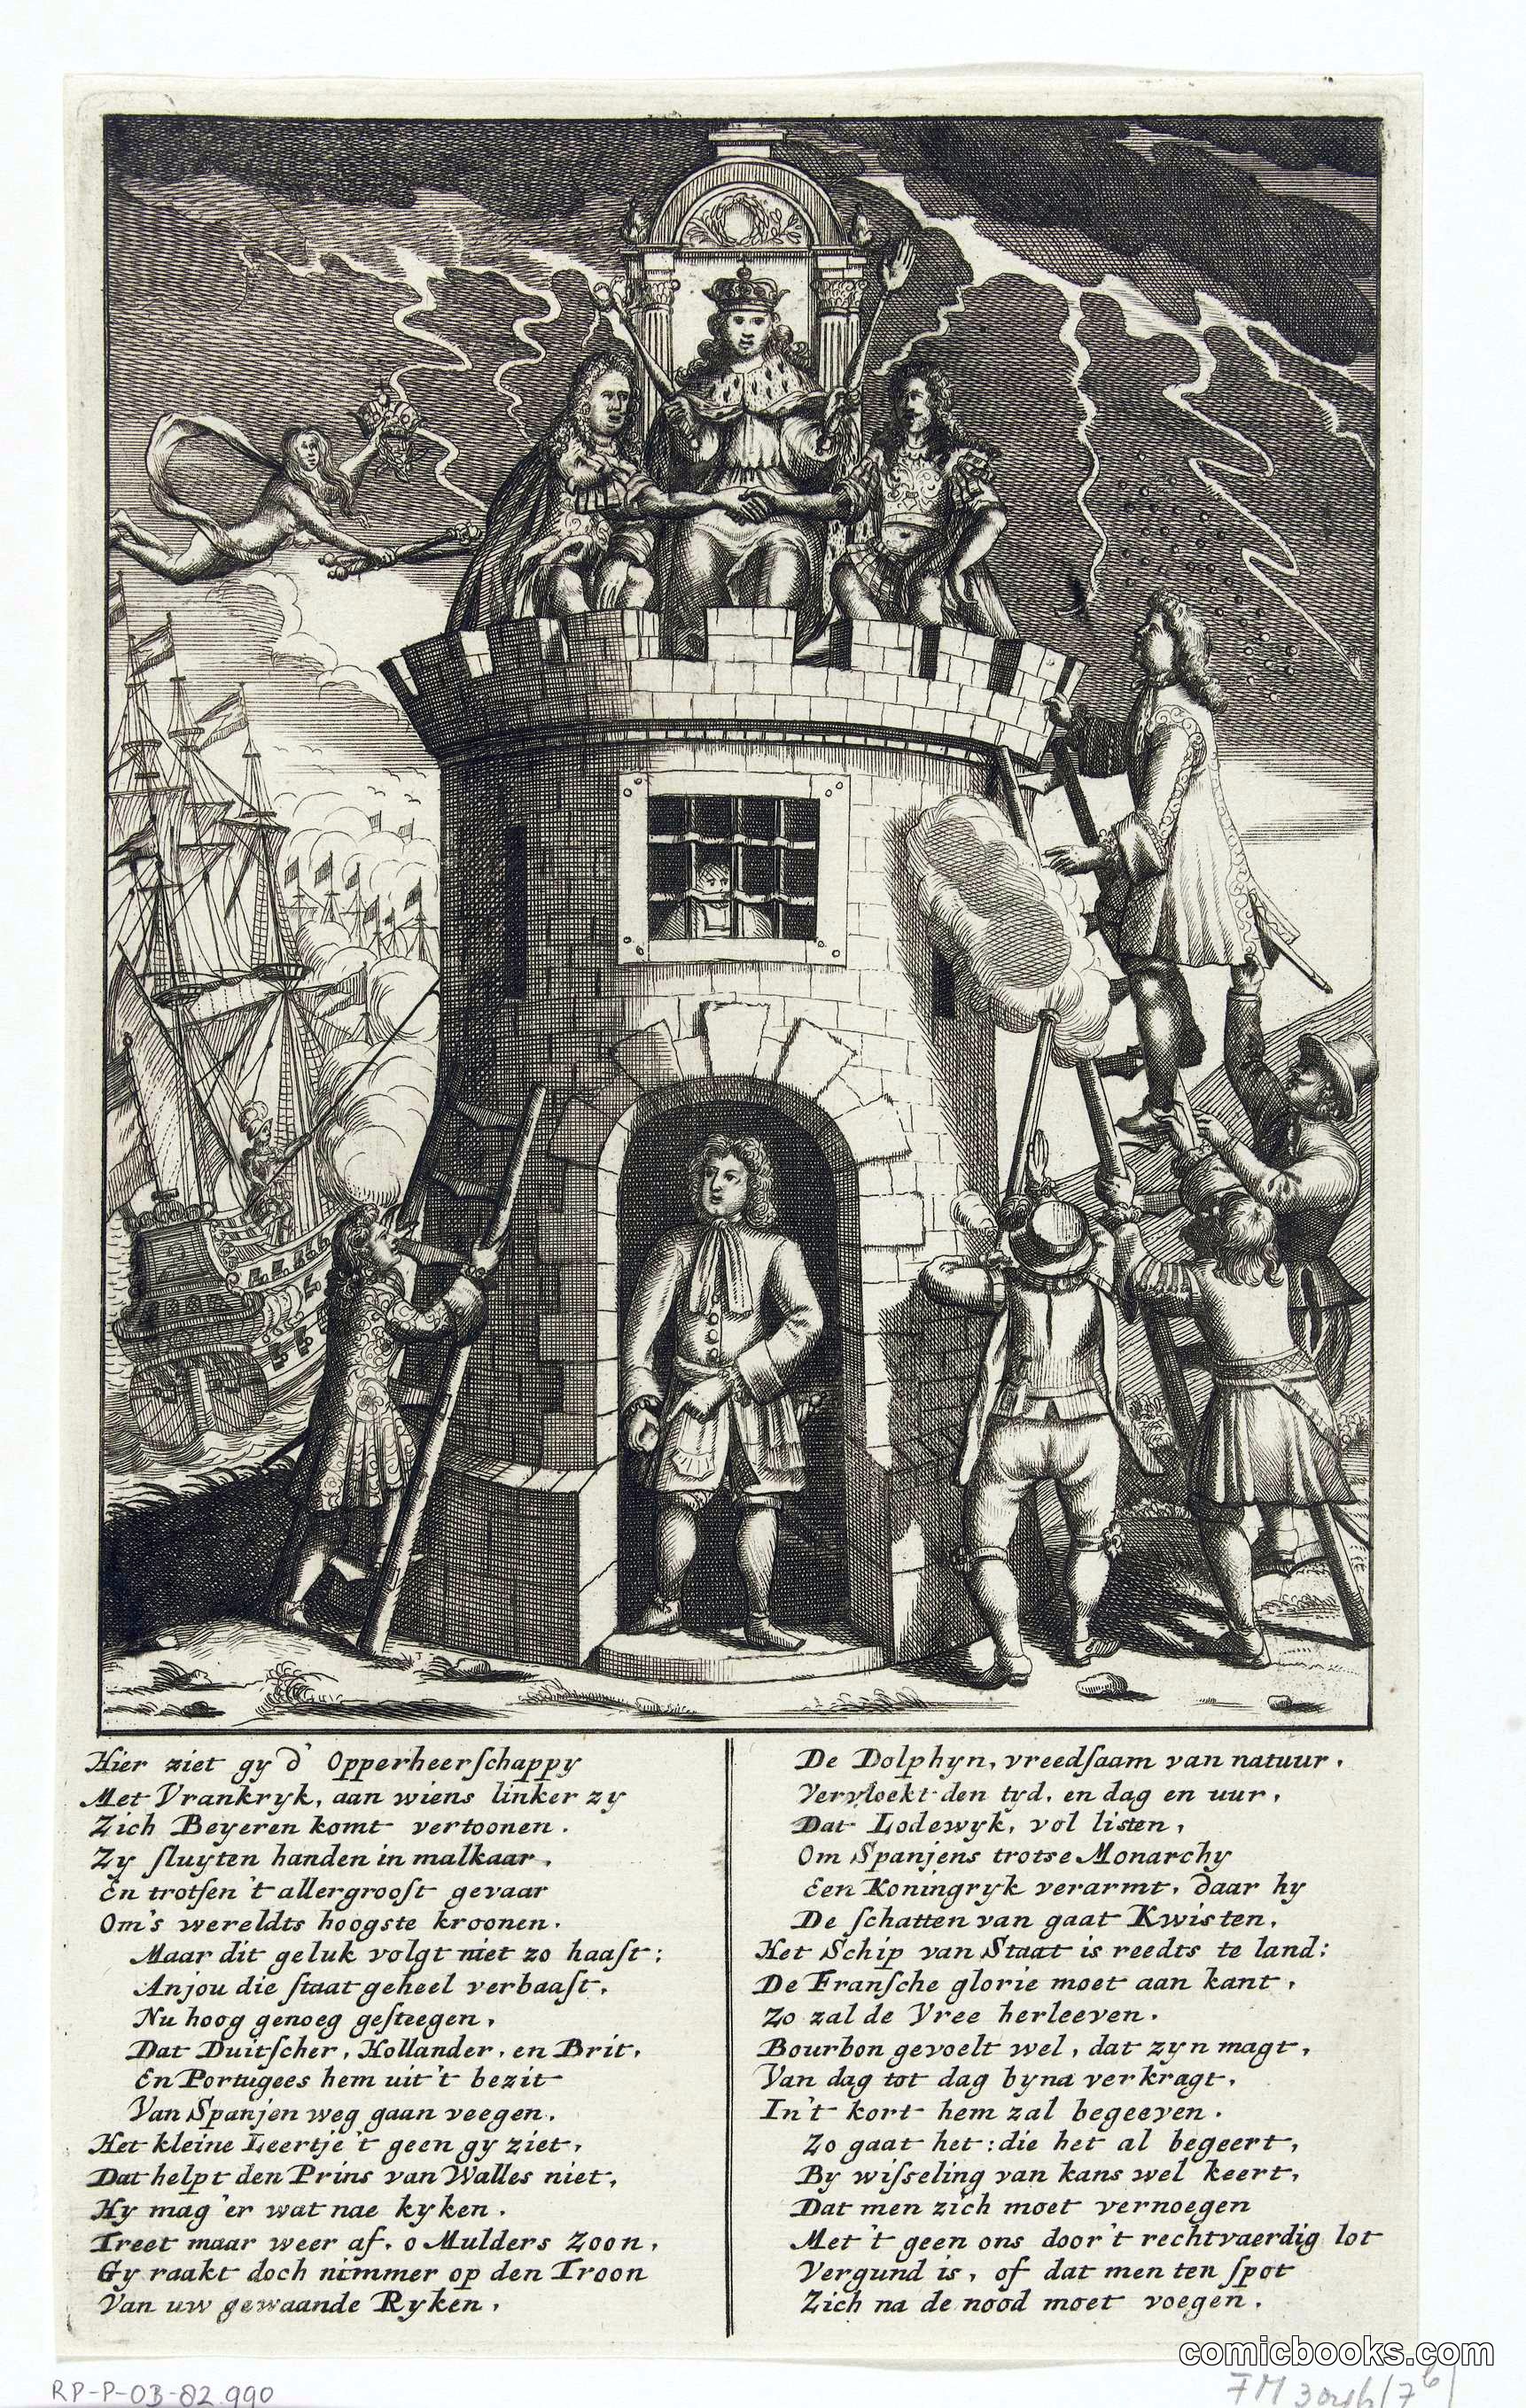 Hier ziet gy d' Opperheerſchappy
Met Vrankryk, aan wiens linker zy
Zich Beyeren komt vertoonen.
Zy ſluyten handen in malkaar,
En trotſen 't allergrooſt gevaar
Om's wereldts hoogste kroonen.
Maar dit geluk volgt niet zo haaſt:
Anjou die ſtaat geheel verbaaſt,
Nu hoog genoeg geſteegen,
Dat Duitſcher, Hollander, en Brit,
En Portugees hem uit 't bezit
Van Spanjen weg gaan veegen.
Het kleine Leertje 't geen gy ziet,
Dat helpt den Prins van Walles niet,
Hy mag 'er wat nae kyken.
Treet maar weer af, o Mulders Zoon,
Gy raakt doch nimmer op den Troon
Van uw gewaande Ryken.
De Dolphyn, vreedſaam van natuur,
Vervloekt den tyd, en dag en uur,
Dat Lodewyk, vol listen,
Om Spanjens trotse Monarchy
Een Koningryk verarmt, daar hy
De ſchatten van gaat Kwisten,
Het Schip van Staat is reedts te land:
De Franſche glorie moet aan kant,
Zo zal de Vree herleeven.
Bourbon gevoelt wel, dat zyn magt,
Van dag tot dag byna verkragt,
In't kort hem zal begeeven.
Zo gaat het: die het al begeert,
By wiſſeling van kans wel keert,
Dat men zich moet vernoegen
Met 't geen ons door't rechtvaerdig lot
Vergund is, of dat men ten ſpot
Zich na de nood moet voegen.
comicbooks.com
RP-P-OB-82.990
FM